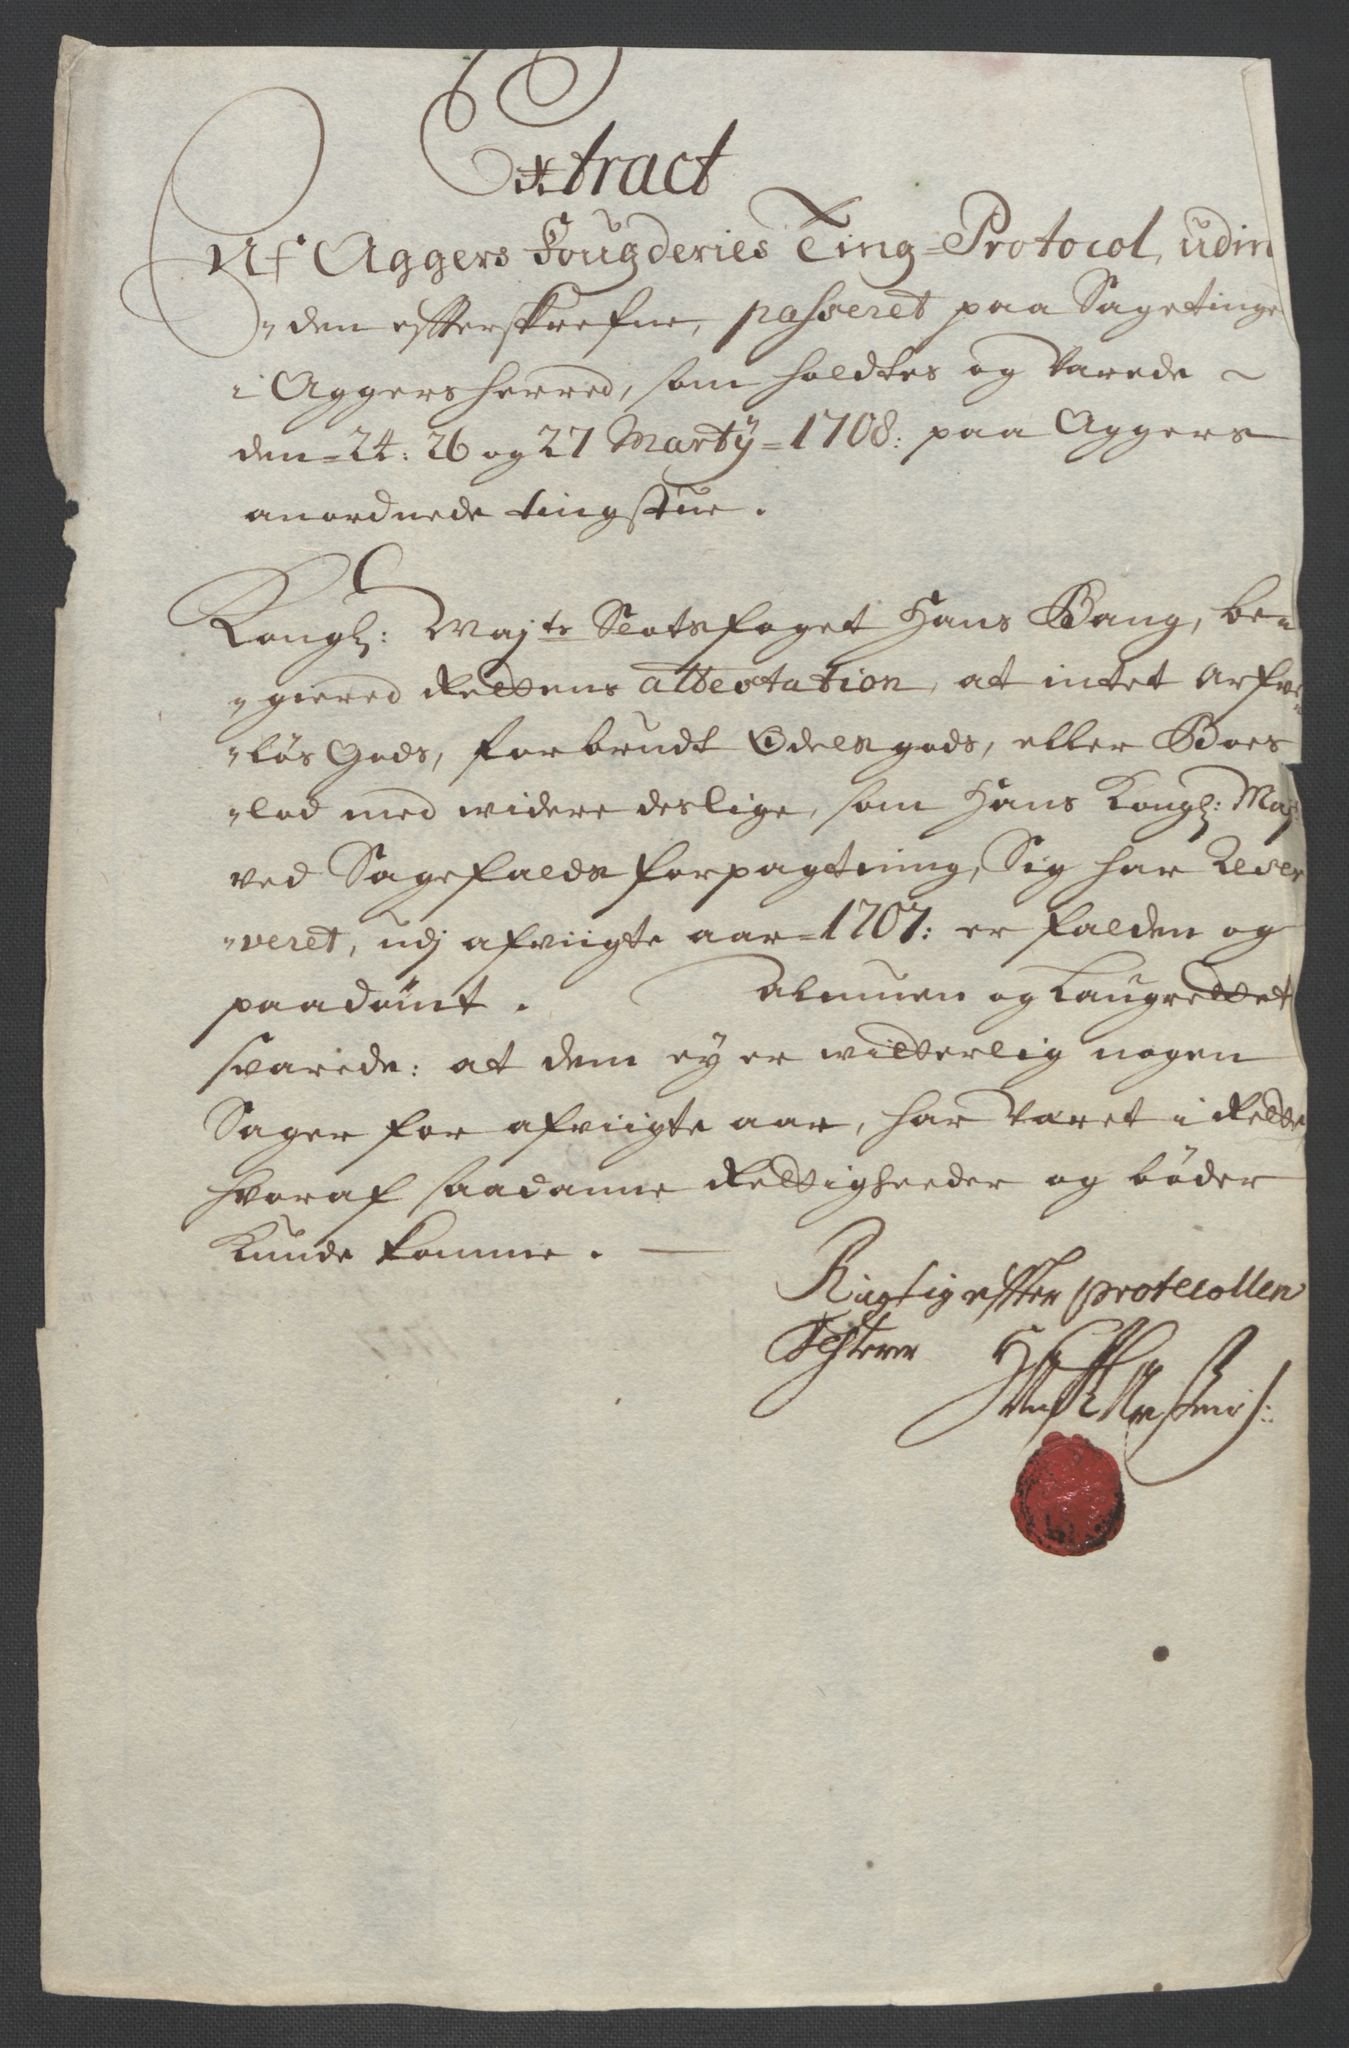 Extract
Af Aggers Fougderies Ting-Protocol, udin
"den efterskrefne, passeret paa Sagetinge
i Aggersherred, som holdtes og varede ~
den = 24: 26 og 27 Martÿ = 1708: paa Aggers
anordnede tingstue.
Kongl: Majts Slotsfoget Hans Bang, be=
"giered Rettens attestation, at intet Arfve
"løs Gods, forbrudt Odelsgods, eller Boes
"lod med widere deslige, som Hans Kongl: Maj:
ved Sagefalds forpagtning, Sig har Reser
"veret, udj afviigte aar = 1707: er falden og
paadømt. Almuen og Laugrettet
svarede: at dem ey er witterlig nogen
Sager for afviigte aar, har varet i Rette,
hvoraf saadanne Rettigheeder og bøder
kunde komme. —
Rigtig efter protecollen
Testerer